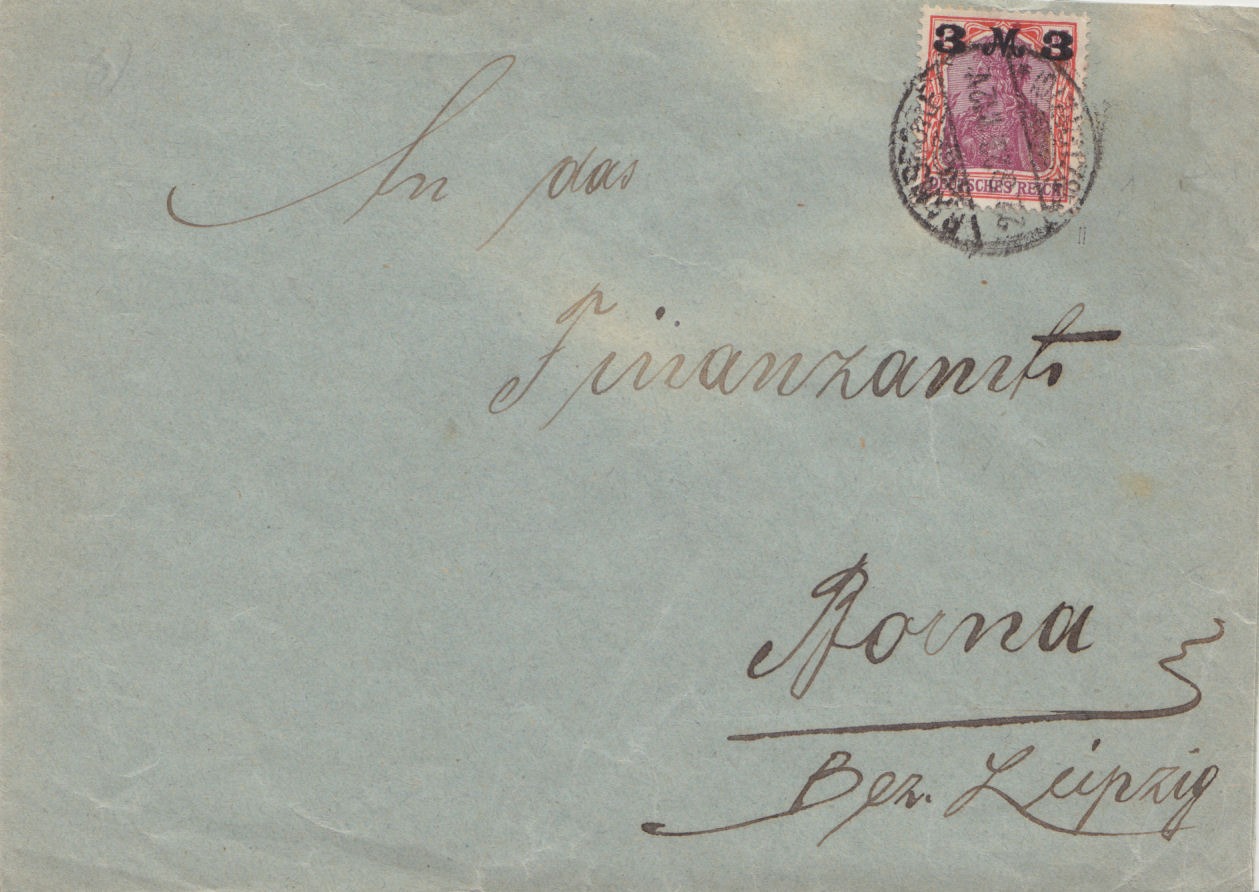 3 M 3
DEUTSCHES REICH
An das
Finanzamt
Borna
Bez. Leipzig